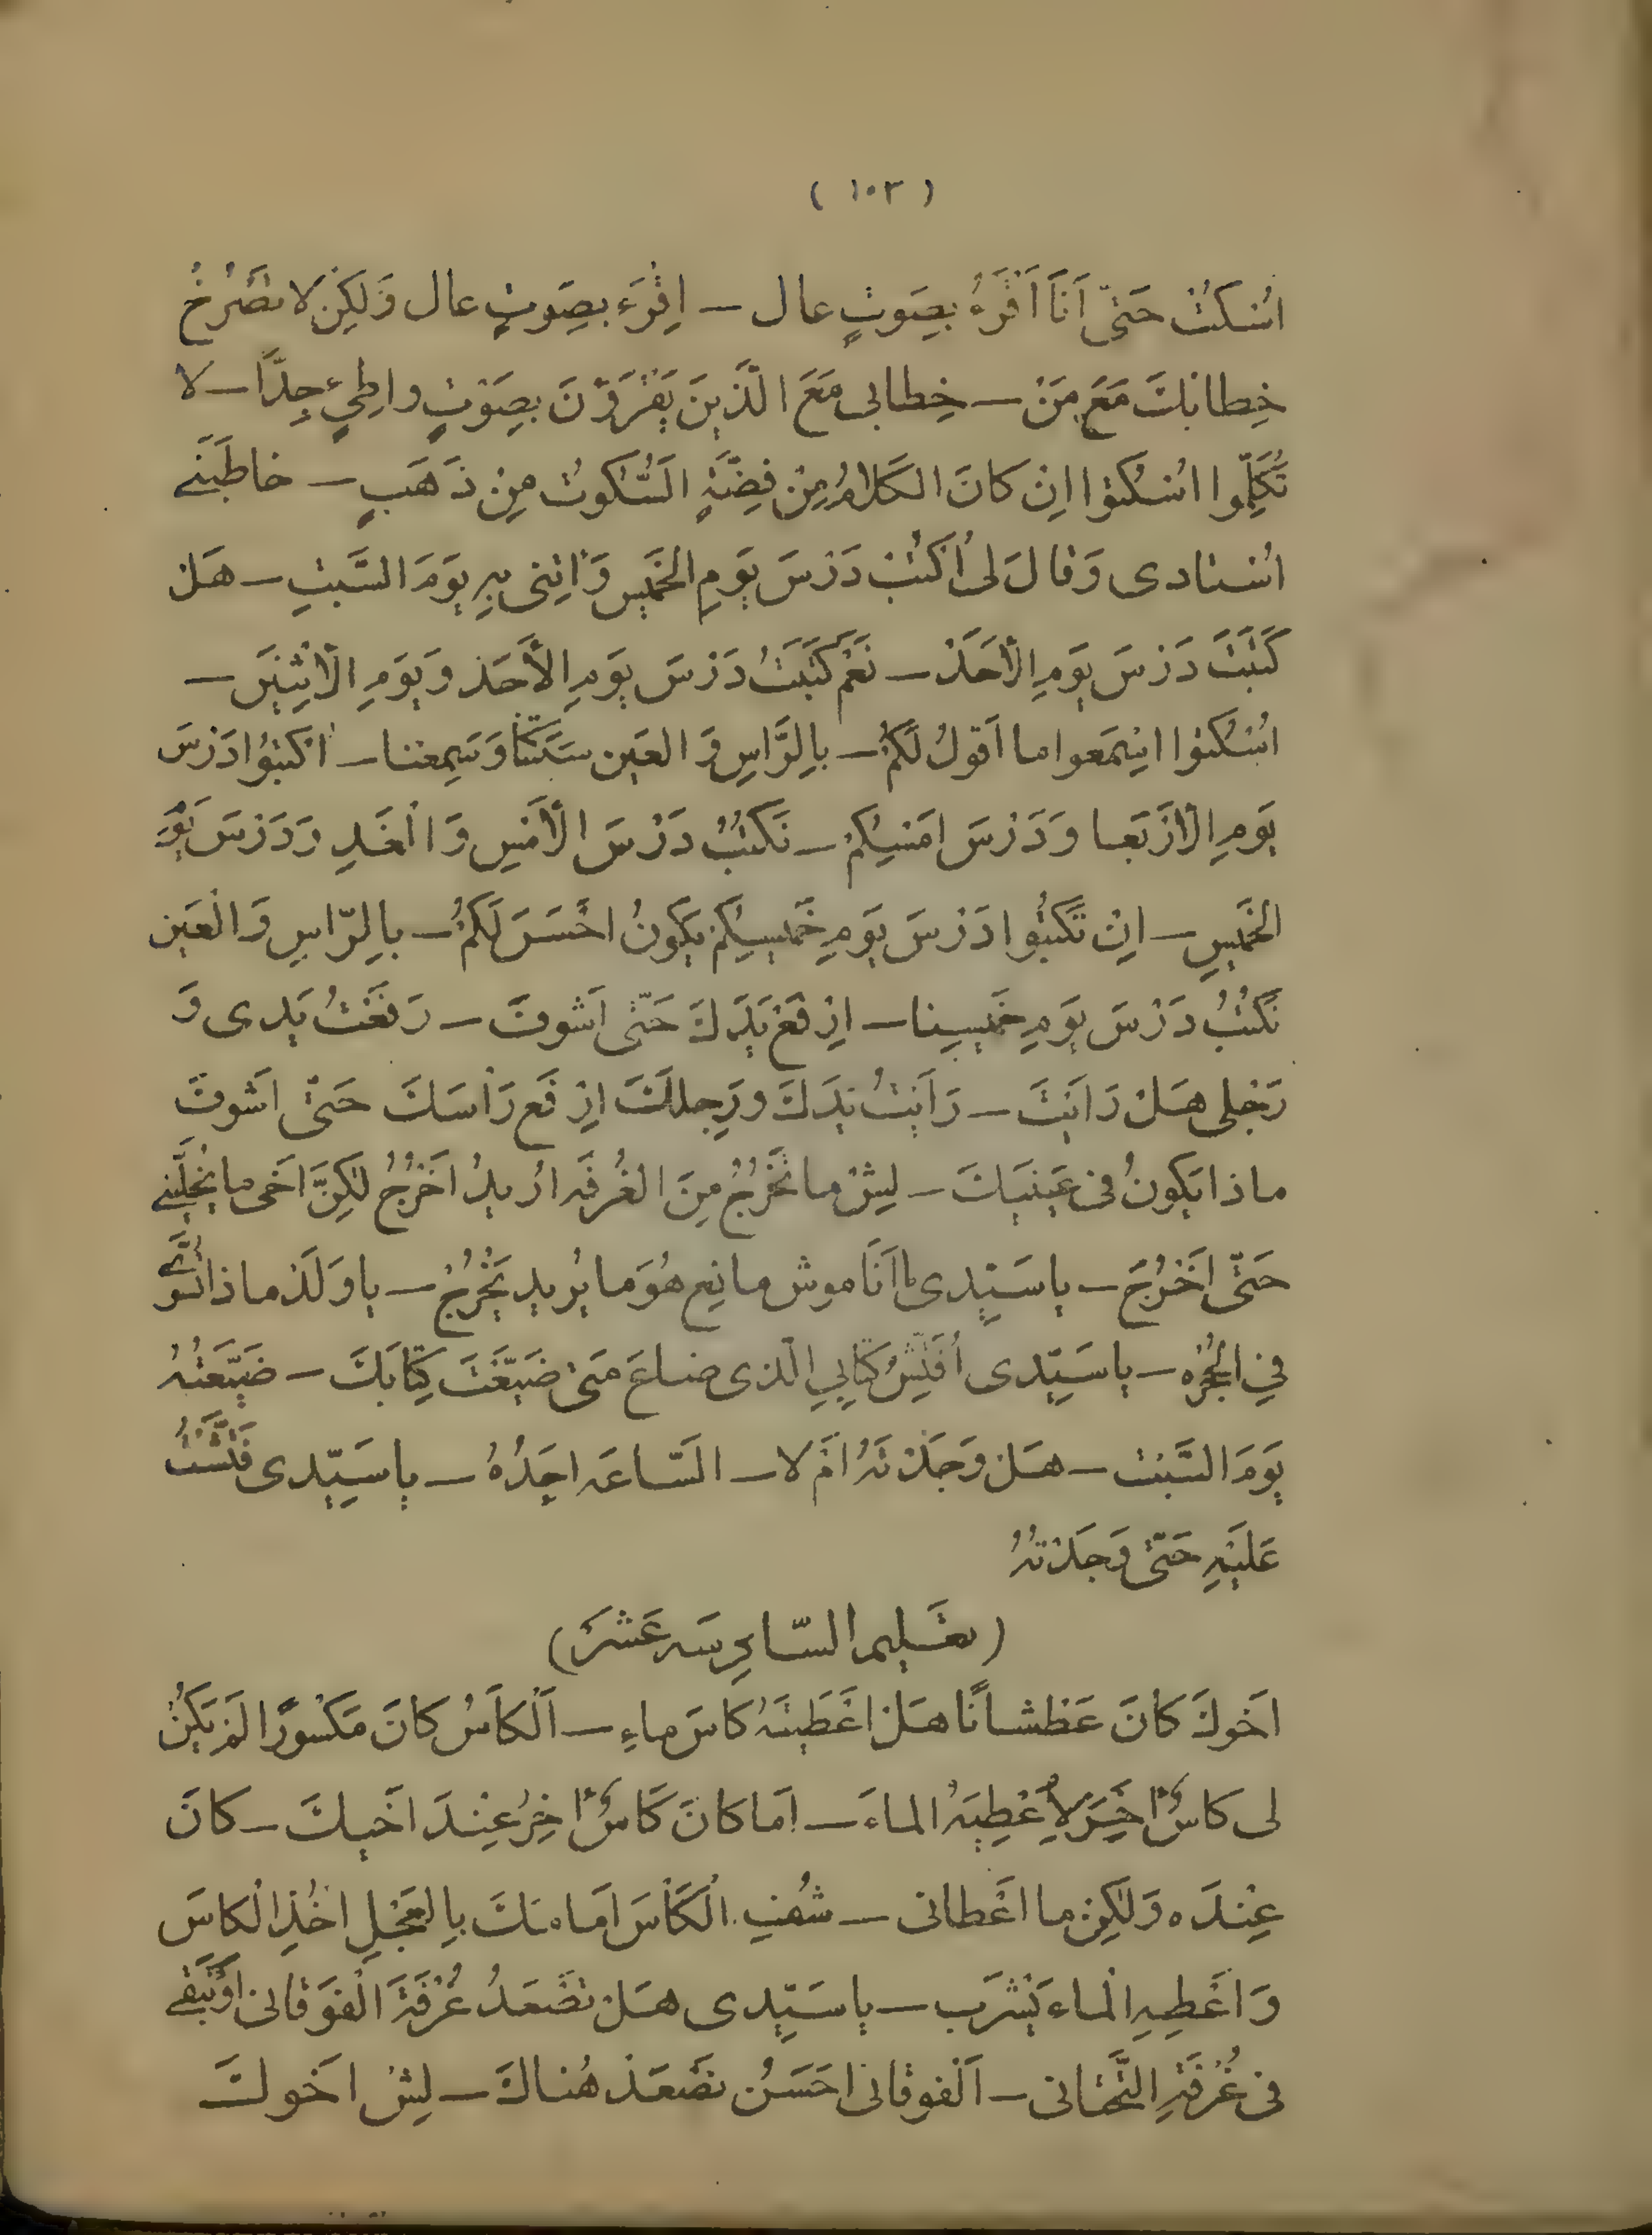 ( ١٠٢ )
اُسْكُتْ حَتّىٰ اَنَا اَقْرَءُ بِصَوتٍ عال – اِقْرَءْ بِصَوتٍ عال وَلٰكِنْ لا تَصْرُخْ
خِطابُكَ مَعَ مَنْ – خِطابى مَعَ الَّذينَ يَقْرَؤُنَ بِصَوْتٍ واطِىءٍ جِدّاً – لا
تَكَلَّمُوا اُسْكُتوا اِنْ كانَ الكَلامُ مِنْ فِضَّةٍ السُّكوتُ مِنْ ذَهَبٍ – خاطَبَنى
اُسْتادى وَقالَ لى اُكْتُبْ دَرْسَ يَومِ الخَميس وَأْتِنى بِهِ يَومَ السَّبتِ – هَلْ
كَتَبْتَ دَرْسَ يَومِ الْأحَدْ – نَعَمْ كَتَبْتُ دَرْسَ يَومِ الأحَدْ وَيَومِ الْاثْنَيْنِ –
اُسْكُتوا اِسْمَعوا ما اَقولُ لَكُمْ – بِالرَّاسِ وَ العَينِ سَكَتْنا وَسَمِعْنا – اُكْتُبوُا دَرْسَ
يَومِ الْارْبَعا وَدَرْسَ امْسِكُمْ – نَكْتُبُ دَرْسَ الْأمْسِ وَالْغَدِ وَدَرْسَ يَوْمِ
الخَميسِ – اِنْ تَكْتُبُوا دَرْسَ يَومِ خَميسِكُمْ يَكونُ احْسَنَ لَكُمْ – بِالرّاسِ وَالْعَينِ
نَكْتُبُ دَرْسَ يَومِ خَميسِنا – اِرْفَعْ يَدَكَ حَتّى اَشوفَ – رَفَعْتُ يَدى وَ
رَجْلى هَلْ رَاَيْتَ – رَاَيْتُ يَدَكَ ورِجلَكَ اِرْفَع رَاْسَكَ حَتّى اَشوفَ
ماذا يَكونُ فى عَينَيكَ – ليشْ ما تَخْرُجُ مِنَ الغُرفَه اُريدُ اَخْرُجُ لٰكِنَّ اَخى ما يُخَلّينى
حَتّى اَخْرُجَ – يا سَيّدى اَنَا موش مانِع هُوَ ما يُريد يَخْرُجُ – يا وَلَدْ ماذا تُسَوّى
فِى الحُجْرَه – يا سَيّدى اُفَتِّشُ كِتابِى الّذى ضاعَ مَتىٰ ضَيَّعْتَ كِتابَكَ – ضَيَّعْتُهُ
يَومَ السَّبْت – هَلْ وَجَدْتَهُ اَمْ لا – السّاعَه اَجِدُهُ – يا سَيّدى فَتَّشْتُ
عَلَيْهِ حَتّىٰ وَجَدْتُهُ
(تعْليم السّادِسَه عَشَرْ)
اَخوكَ كانَ عَطْشاناً هَلْ اعْطَيتَهُ كاسَ ماءِ – اَلْكاسُ كانَ مَكْسوراً لَمْ يَكُنْ
لى كاسٌ اخَرَ لِأُعْطِيَهُ الماءَ – اَما كانَ كاسٌ اخَرُ عِنْدَ اَخيكَ – كانَ
عِنْدَه وَلٰكِنْ ما اعْطانى – شُفِ الْكَأْسَ اَمامَكَ بِالعَجْلِ اخُذِ الْكاسَ
وَاعْطِهِ الْماء يَشْرَب – يا سَيّدى هَلْ نَصْعَدُ غُرْفَةَ الْفَوْقانى اَوْ نَبْقى
فى غُرْفَةِ التَّحْتانى – اَلْفوقانى احَسَنُ نَصْعَدْ هُناكَ – لِيشْ اخَوكَ